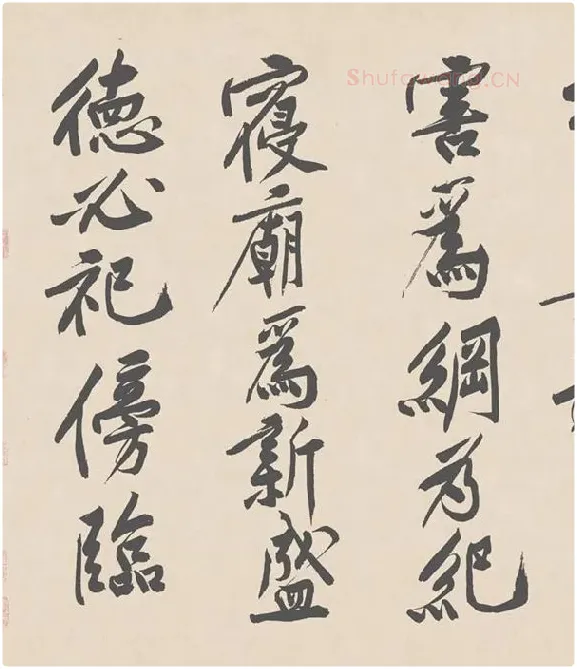 害爲綱为紀
寢廟爲新盛
德必祀傍臨
Shufawang.CN